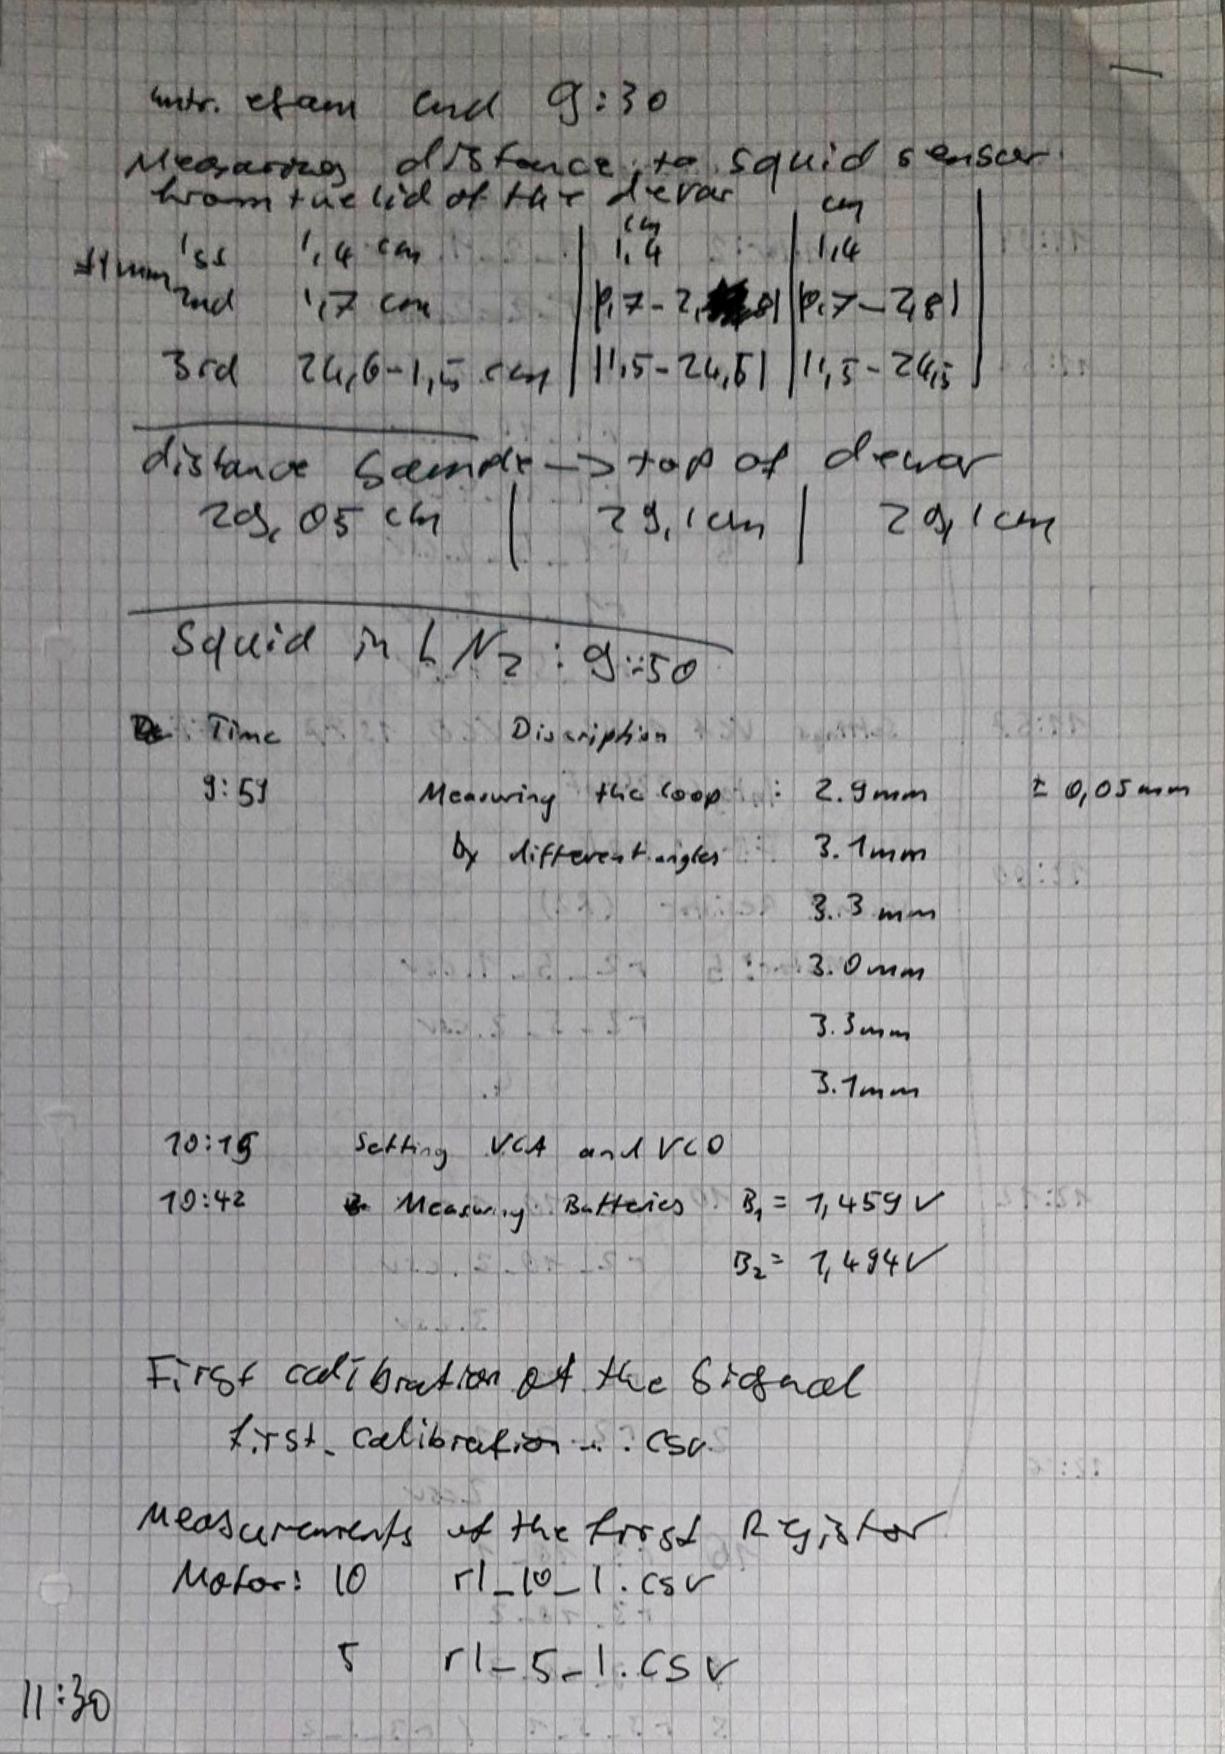 intr. exam end 9:30
Measuring distance to squid sensor
from the lid of the devar
cm
cm
1st 1,4 cm | 1,4 | 1,4 |
±1mm
2nd 1,7 cm | |0,7-2,8| | |0,7-2,8| |
3rd 24,6-1,5 cm | |1,5-24,6| | |1,5-24,5 |
distance Sample -> top of dewar
29,05 cm | 29,1cm | 29,1cm
Squid in LN2 : 9:50
Time Discription
9:59 Measuring the loop : 2.9mm ± 0,05mm
by different angles 3.1mm
3.3 mm
3.0mm
3.3mm
3.1mm
10:15 Setting VCA and VCO
10:42 Measuring Batteries B1 = 1,459V
B2 = 1,494V
First calibration of the Signal
first_calibration... .csv
Measurements of the first Resistor
Motor: 10 r1_10_1.csv
5 r1_5_1.csv
11:30